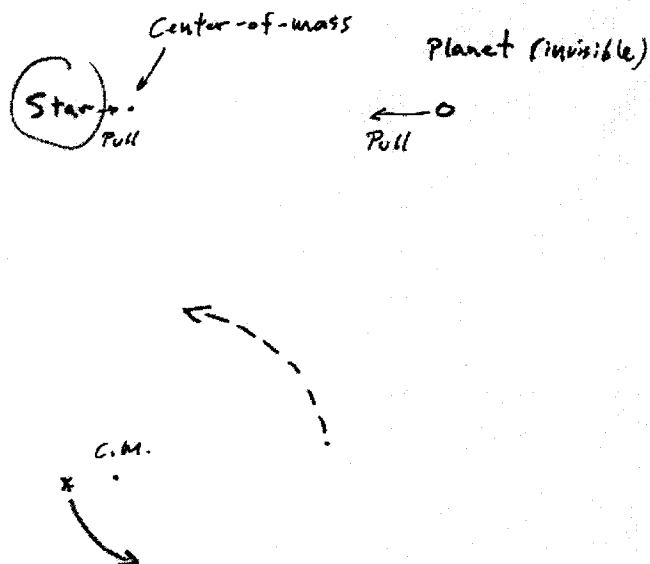 Center-of-mass
Planet (invisible)
Star
Pull
Pull
C.M.